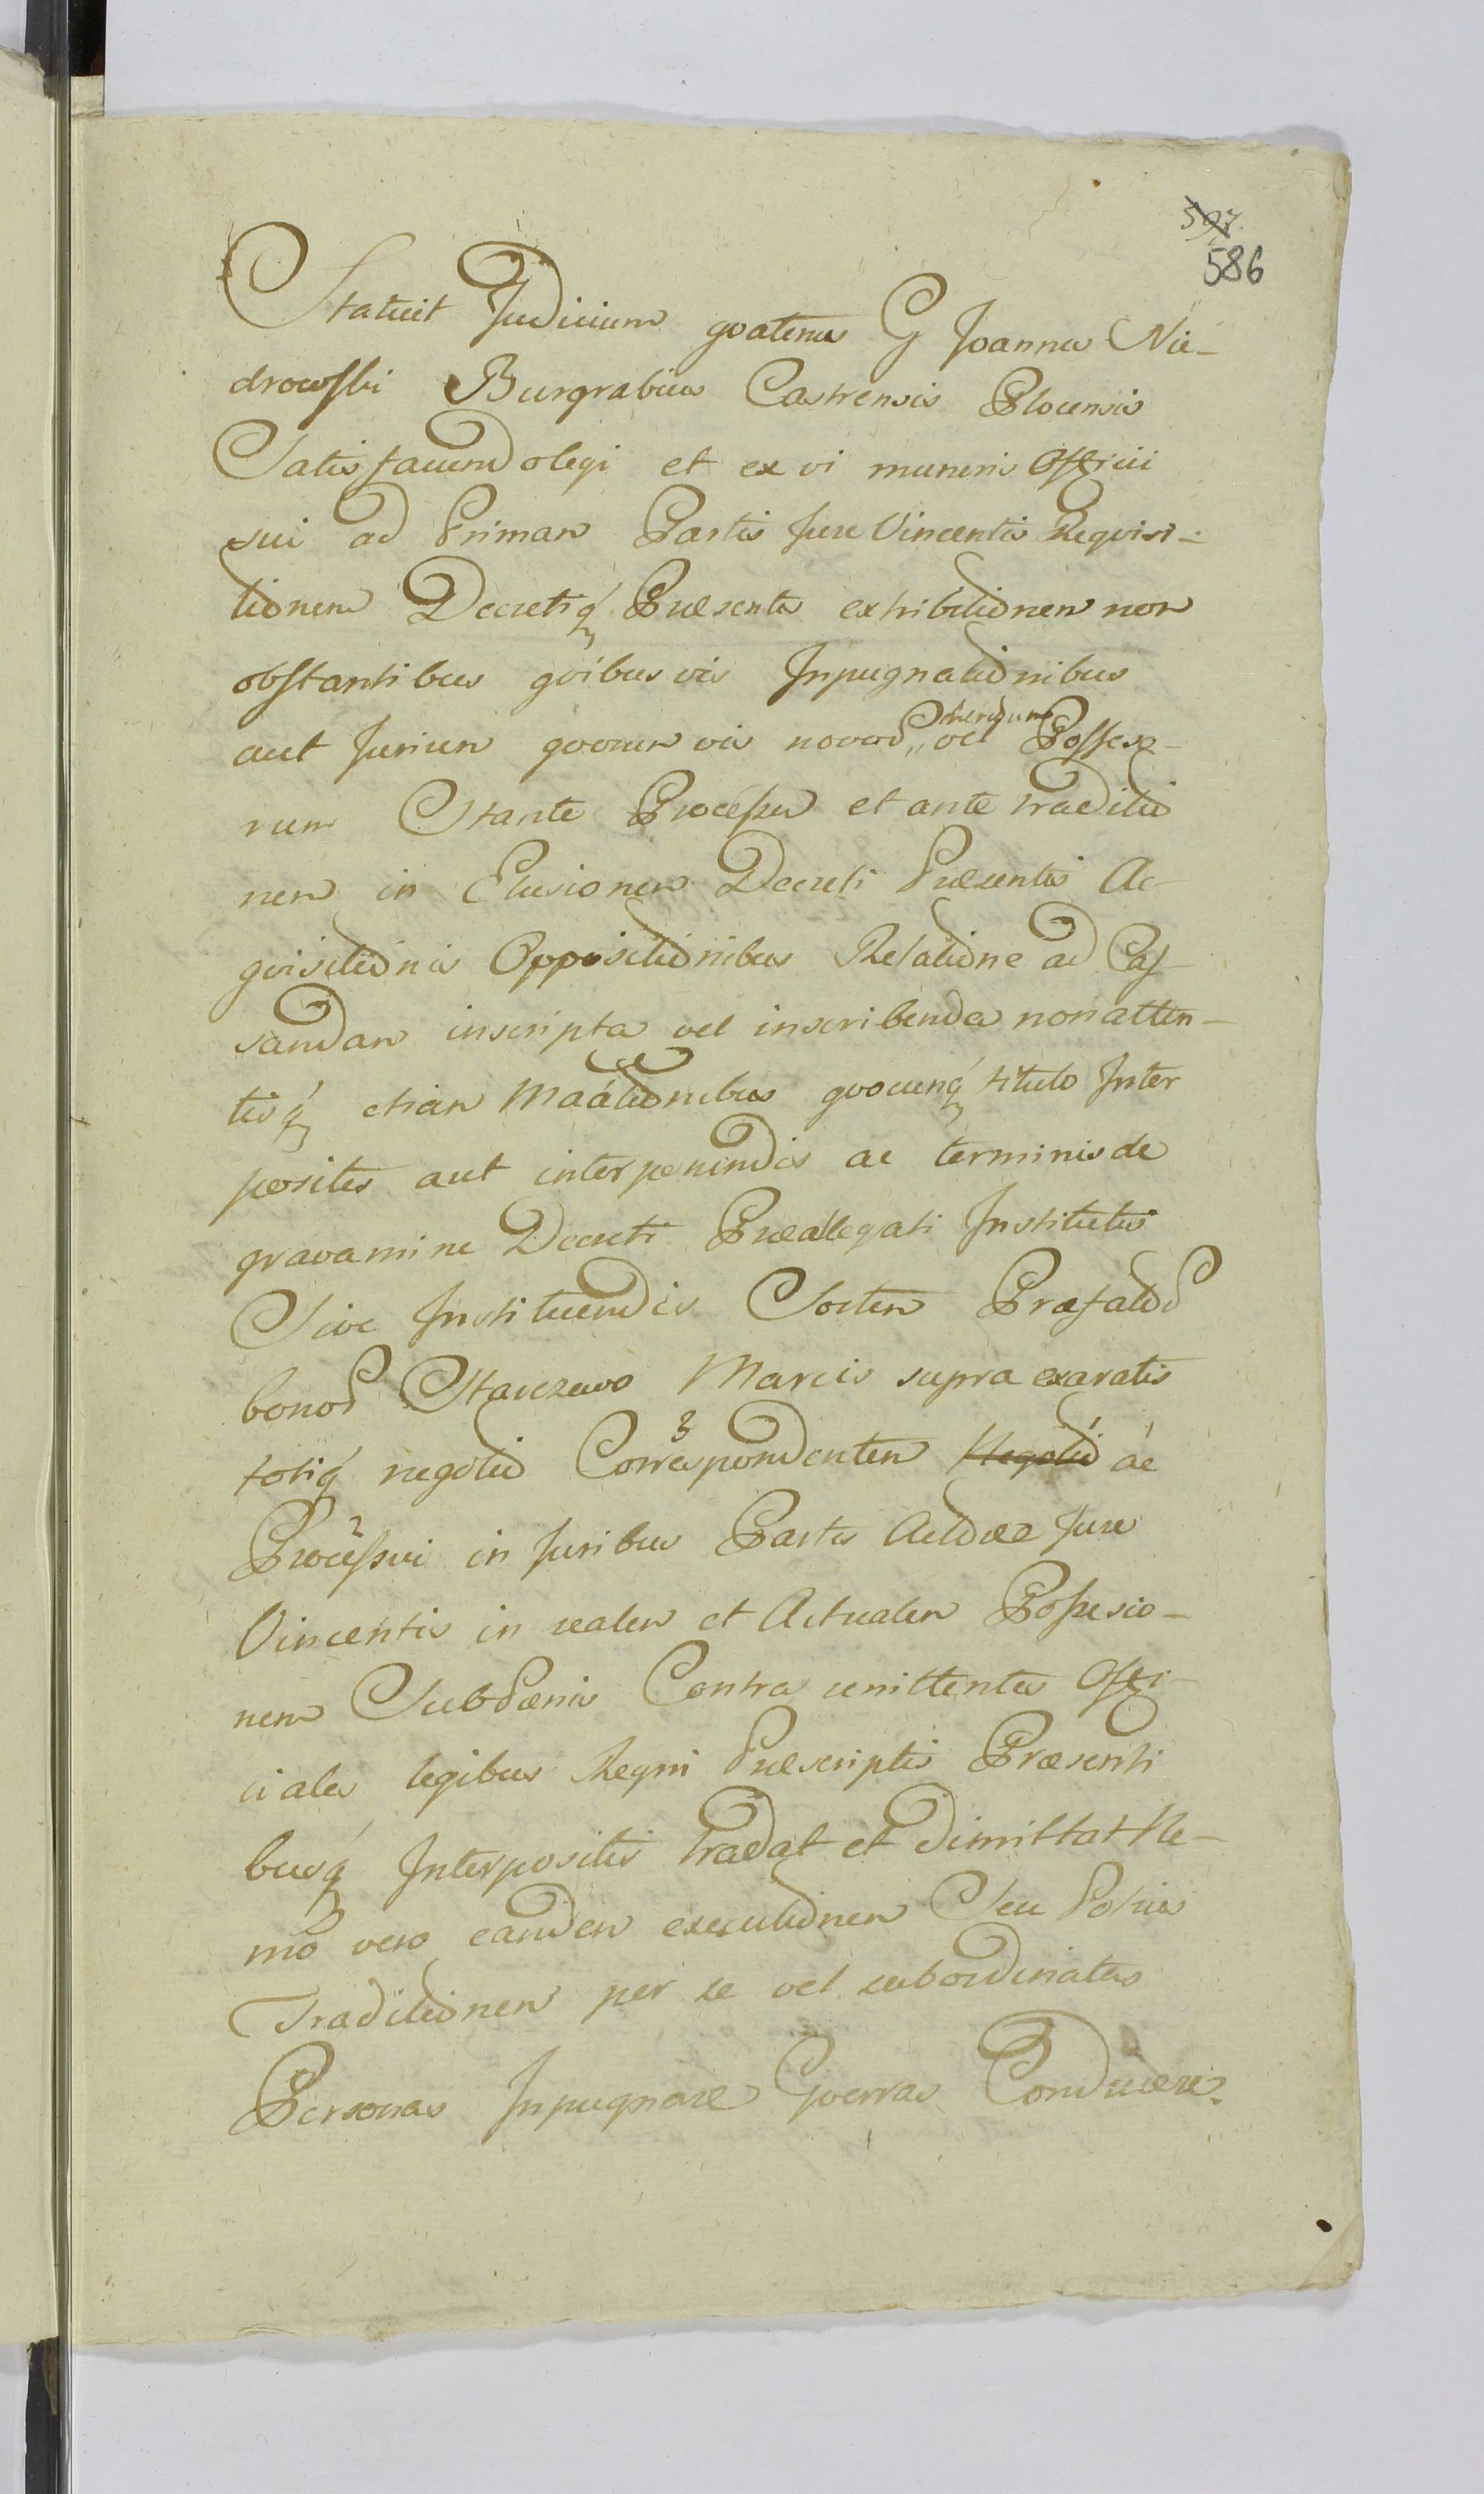 597.
586
Statuit Judicium qvatenus G Joannes Nie-
drowski Burgrabius Castrensis Plocensis
Satisfaciendo legi et ex vi muneris Officii
sui ad Primam Partis Jure Vincentis Reqvisi-
tionem Decretiq́ Præsentis exhibitionem non
obstantibus qvibusvis Inpugnationibus
aut Jurium qvorumvis novor vel Posseso-
rum Stante Processu et ante traditio
nem in Elusionem Decreti Præsentis Ac-
qvisitionis Oppositionibus Relatione ad Cas-
sandam inscripta vel inscribenda non atten-
tisq́ etiam Maãtionibus qvocunq́ titulo Inter
positis aut interponendis ac terminis de
gravamine Decreti Præallegati Institutis
Sive Instituendis Sortem Præfator
bonor Starczewo Marcis supra exaratis
totiq́ negotio Correspondentem Negotio ac
Processui in Juribus Partis Actoræ Jure
Vincentis in realem et Actualem Possesio-
nem Sub Pænis Contra renittentes Offi-
ciales legibus Regni Præscriptis Præsenti
busq́ Interpositis tradat et dimittat Ne-
mo vero eandem executionem Seu Potius
Traditionem per se vel subordinatas
Personas Inpugnare Gverras Conducere